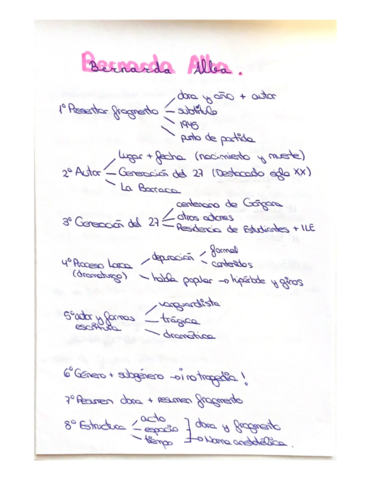 Bernarda Alba.
obra y año + autor
1º Presentar fragmento
subtítulo
1945
punto de partida
lugar + fecha (nacimiento y muerte)
2º Autor
Generación del 27 (Destacado siglo XX)
La Barraca
centenario de Góngora
3º Generación del 27
otros autores
Residencia de Estudiantes + ILE
formal
depuración
4º Proceso Lorca
contenidos
(dramaturgo)
habla popular → hipérbole y giros
vanguardista
5º autor y formas
trágica
escritura
dramática
6º Género + subgénero → ¡ no tragedia !
7º Resumen obra + resumen fragmento
acto
8º Estructura
espacio
obra y fragmento
tiempo
→ Norma aristotélica.